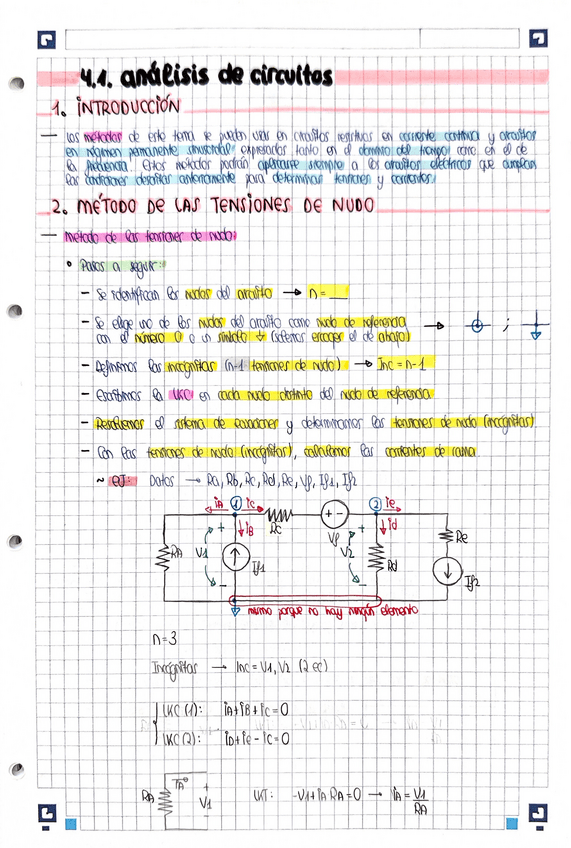 4.1. análisis de circuitos
1. INTRODUCCIÓN
— Los métodos de este tema se pueden usar en circuitos resistivos en corriente continua y circuitos
en régimen permanente sinusoidal expresados tanto en el dominio del tiempo como en el de
la frecuencia. Estos métodos podrán aplicarse siempre a los circuitos eléctricos que cumplan
las condiciones descritas anteriormente para determinar tensiones y corrientes.
2. MÉTODO DE LAS TENSIONES DE NUDO
— Método de las tensiones de nudo:
• Pasos a seguir:
- Se identifican los nudos del circuito → n = __
- Se elige uno de los nudos del circuito como nudo de referencia → ;
con el número 0 o un símbolo ⏚ (solemos escoger el de abajo)
- Definimos las incógnitas (n-1 tensiones de nudo) → Inc = n-1
- Escribimos la LKC en cada nudo distinto del nudo de referencia
- Resolvemos el sistema de ecuaciones y determinamos las tensiones de nudo (incógnitas).
- Con las tensiones de nudo (incógnitas), calculamos las corrientes de rama.
~ EJ: Datos → Ra, Rb, Rc, Rd, Re, Vf, If1, If2
iA 1 iC 2 ie
+ iB Rc + - Vf + id Re
RA V1 If1 V2 Rd
- - If2
mismo porque no hay ningún elemento
n=3
Incógnitas → Inc = V1, V2 (2 ec)
LKC (1): iA + iB + iC = 0
LKC (2): iD + ie - iC = 0
RA iA + V1 - LKT: -V1 + iA RA = 0 → iA = V1/RA